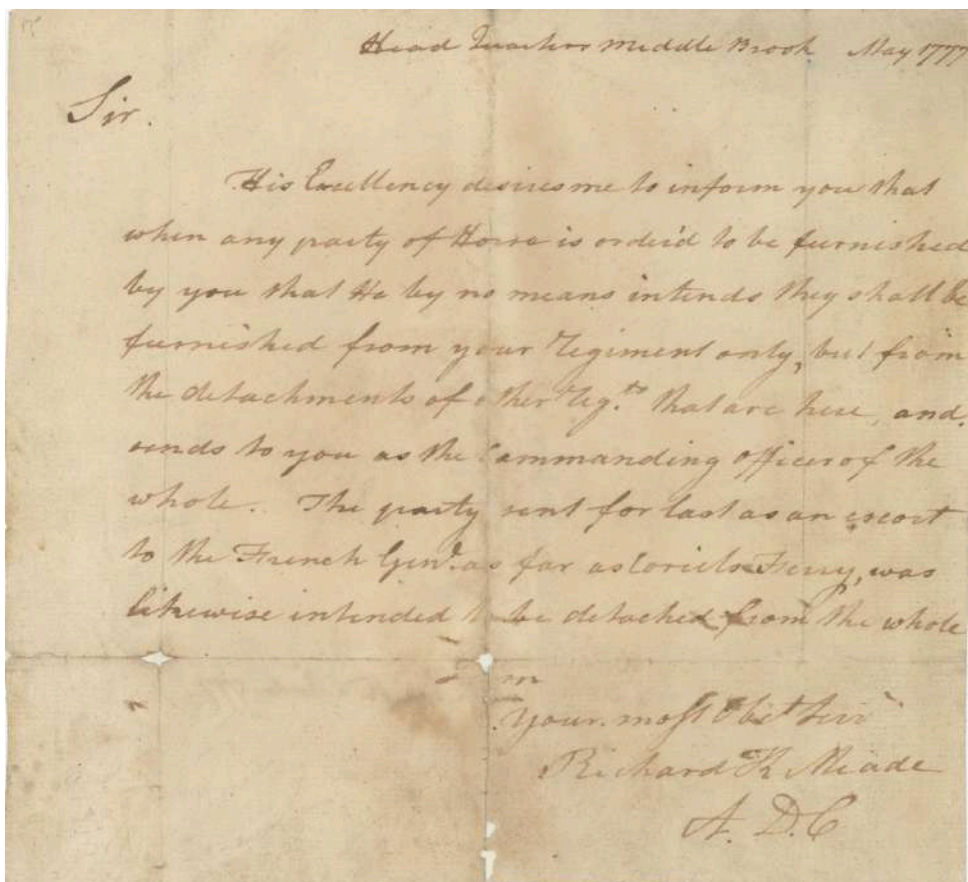 Head Quarters Middle Brook May 1777
Sir.
His Excellency desires me to inform you that
when any party of Horse is order'd to be furnished
by you that He by no means intends they shall be
furnished from your Regiment only, but from
the detachments of other Regts. that are here, and
sends to you as the Commanding Officer of the
whole. The party sent for last as an escort
to the French Genl. as far as Coriels Ferry, was
likewise intended to be detached from the whole
Your most Obet Serv
Richard K Meade
A. D. C